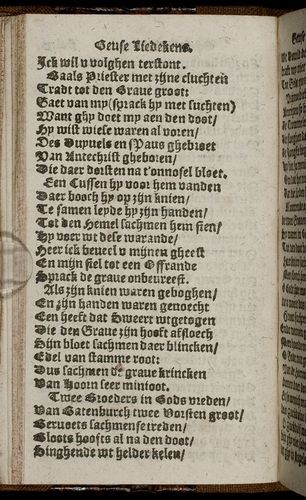 Geuse Liedekens.
Ick wil v volghen terstont.
Baals Priester met zijne cluchten
Tradt tot den Graue groot:
Gaet van my (sprack hy met suchten)
Want ghy doet my aen den doot/
Hy wist wiese waren al voren/
Des Duyuels en sPaus ghebroet
Van Antechrist gheboren/
Die daer dorsten na t'onnosel bloet.
Een Cussen hy voor hem vanden
Daer boech hy op zijn knien/
Te samen leyde hy zijn handen/
Tot den Hemel sachmen hem sien/
Hy voer wt dese warande/
Heer ick beueel v mijnen gheest
En mijn siel tot een Offrande
Sprack de graue onbeureest.
Als zijn knien waren geboghen/
En zijn handen waren geuoecht
Een heeft dat Sweert wtgetogen
Die den Graue zijn hooft afsloech
Sijn bloet sachmen daer blincken/
Edel van stamme root:
Dus sachmen de graue krincken
Van Hoorn seer minioot.
Twee Broeders in Gods vreden/
Van Batenburch twee Vorsten groot/
Geruoets sachmense treden/
Bloots hoofts al na den doot/
Singhende wt helder kelen/